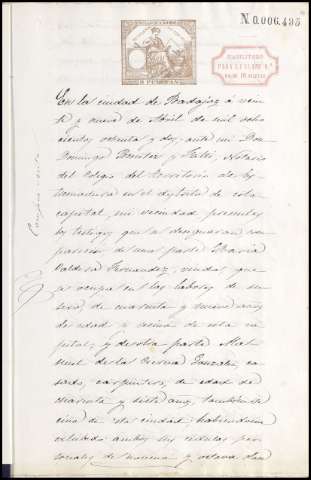 N.0.006.495
En la ciudad de Badajoz á vein
te y nueve de Abril de mil ocho
cientos ochenta y dos, ante mi Don
Domingo y Notario
del Colegio del territorio de Es
tremadura en el distrito de esta
capital, mi vecindad, presentes
los testigos que se designaran com
parecen de una parte Maria
Valdera Fernandez, viuda que
se ocupa en las labores de su
sexo, de cuarenta y nueve años
de edad y vecina de esta ca
pital; y de otra parte Ma
nuel de la Cuerva Gonzalez, ca
sado, carpintero, de edad de
cuarenta y siete años, tambien ve
cino de esta ciudad; habiendome
exhibido ambos sus cedulas per
sonales de novena y octava cla
Compra venta